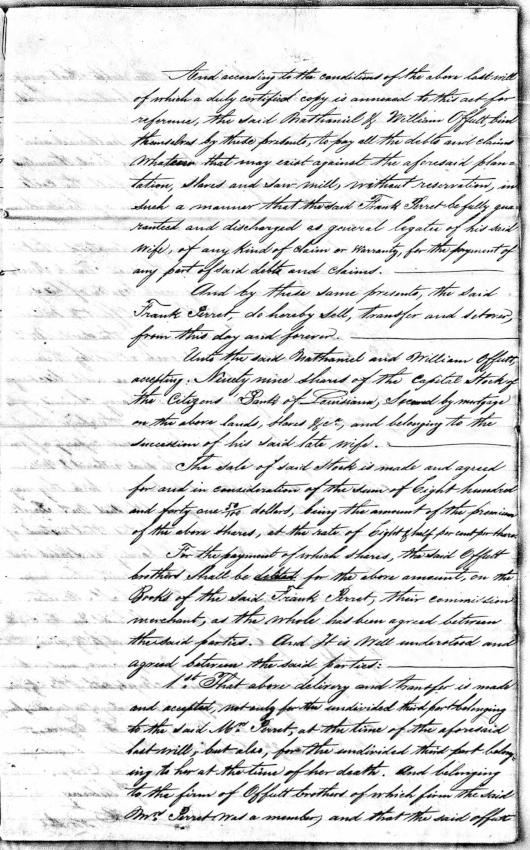 And according to the conditions of the above last will
of which a duly certified copy is annexed to this act for
reference, the said Nathaniel & William Offutt, bind
themselves by these presents, to pay all the debts and claims
Whatever that may exist against the aforesaid plan-
tation, slaves and saw mill, without reservation, in
such a manner that the said Frank Perret be fully gua
ranteed and discharged as general legatee of his said
wife, of any kind of claim or warranty, for the payment of
any part of said debts and claims.
And by these same presents, the said
Frank Perret, do hereby sell, transfer and set over,
from this day and forever.
Unto the said Nathaniel and William Offutt,
accepting: Ninety nine shares of the Capital Stock of
the Citizens' Bank of Louisiana, Secured by mortgage
on the above lands, slaves &c, and belonging to the
succession of his said late wife.
The sale of said Stock is made and agreed
for and in consideration of the sum of Eight hundred
and forty one 50/100 dollars, being the amount of the premium
of the above shares, at the rate of Eight & half per cent per share.
For the payment of which shares, the said Offutt
brothers shall be debted for the above amount, on the
Books of the said Frank Perret, their commission
merchant, as the whole has been agreed between
the said parties. And It is Well understood and
agreed between the said parties:
1st. That above delivery and transfer is made
and accepted, not only for the undivided third part belonging
to the said Mrs Perret, at the time of the aforesaid
last will; but also, for the undivided third part belong-
ing to her at the time of her death. And belonging
to the firm of Offutt brothers of which firm the said
Mrs Perret was a member, and that the said offutt